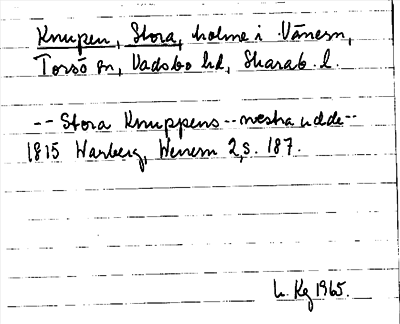 Knupen, Stora, holme i Vänern,
Torsö sn, Vadsbo hd, Skarab. l.
-- Stora Knuppens -- westra udde --
1815 Warberg, Wenern 2, s. 187.
L. Kg 1965.